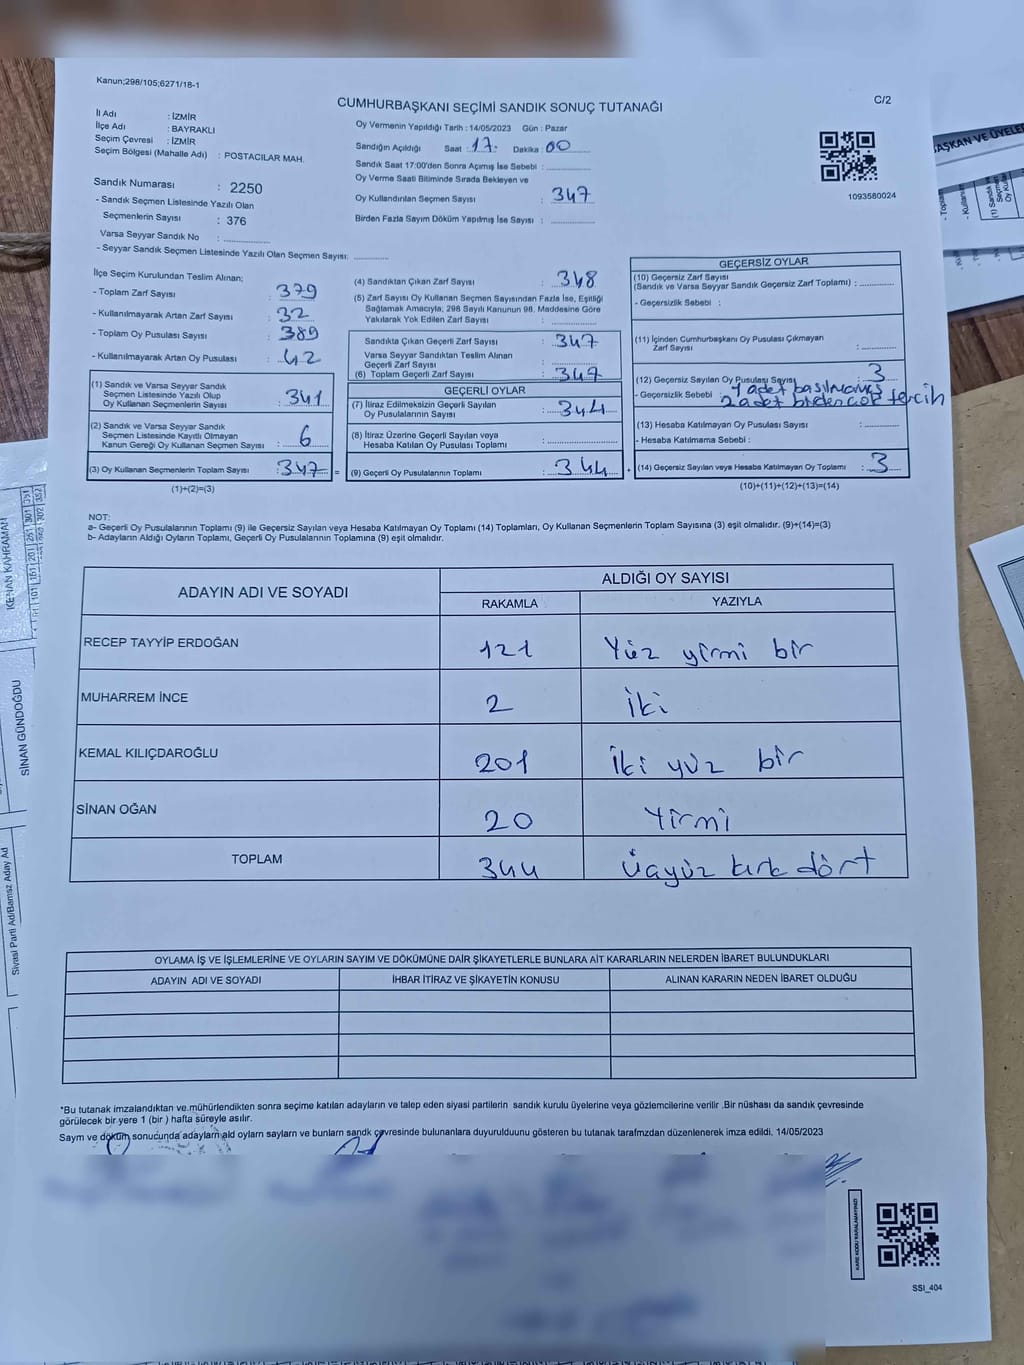 Kanun;298/105;6271/18-1
CUMHURBAŞKANI SEÇİMİ SANDIK SONUÇ TUTANAĞI
C/2
İl Adı : İZMİR
İlçe Adı : BAYRAKLI
Seçim Çevresi : İZMİR
Seçim Bölgesi (Mahalle Adı) : POSTACILAR MAH.
Sandık Numarası : 2250
- Sandık Seçmen Listesinde Yazılı Olan
Seçmenlerin Sayısı : 376
Varsa Seyyar Sandık No : ..............
- Seyyar Sandık Seçmen Listesinde Yazılı Olan Seçmen Sayısı: ............
Oy Vermenin Yapıldığı Tarih : 14/05/2023 Gün : Pazar
Sandığın Açıldığı Saat : 17. Dakika : 00
Sandık Saat 17:00'den Sonra Açılmış İse Sebebi : ............
Oy Verme Saati Bitiminde Sırada Bekleyen ve
Oy Kullandırılan Seçmen Sayısı : 347
Birden Fazla Sayım Döküm Yapılmış İse Sayısı : ............
1093580024
İlçe Seçim Kurulundan Teslim Alınan;
- Toplam Zarf Sayısı : 379
- Kullanılmayarak Artan Zarf Sayısı : 32
- Toplam Oy Pusulası Sayısı : 389
- Kullanılmayarak Artan Oy Pusulası : 42
(1) Sandık ve Varsa Seyyar Sandık
Seçmen Listesinde Yazılı Olup
Oy Kullanan Seçmenlerin Sayısı : 341
(2) Sandık ve Varsa Seyyar Sandık
Seçmen Listesinde Kayıtlı Olmayan
Kanun Gereği Oy Kullanan Seçmen Sayısı : 6
(3) Oy Kullanan Seçmenlerin Toplam Sayısı : 347 =
(1)+(2)=(3)
(4) Sandıktan Çıkan Zarf Sayısı : 348
(5) Zarf Sayısı Oy Kullanan Seçmen Sayısından Fazla İse, Eşitliği
Sağlamak Amacıyla; 298 Sayılı Kanunun 98. Maddesine Göre
Yakılarak Yok Edilen Zarf Sayısı : ............
Sandıkta Çıkan Geçerli Zarf Sayısı : 347
Varsa Seyyar Sandıktan Teslim Alınan
Geçerli Zarf Sayısı : ............
(6) Toplam Geçerli Zarf Sayısı : 347
GEÇERLİ OYLAR
(7) İtiraz Edilmeksizin Geçerli Sayılan
Oy Pusulalarının Sayısı : 344
(8) İtiraz Üzerine Geçerli Sayılan veya
Hesaba Katılan Oy Pusulası Toplamı : ............
(9) Geçerli Oy Pusulalarının Toplamı : 344 +
GEÇERSİZ OYLAR
(10) Geçersiz Zarf Sayısı
(Sandık ve Varsa Seyyar Sandık Geçersiz Zarf Toplamı) : ............
- Geçersizlik Sebebi :
(11) İçinden Cumhurbaşkanı Oy Pusulası Çıkmayan
Zarf Sayısı : ............
(12) Geçersiz Sayılan Oy Pusulası Sayısı : 3
- Geçersizlik Sebebi 1 adet basılmamış
2 adet birden çok tercih
(13) Hesaba Katılmayan Oy Pusulası Sayısı : ............
- Hesaba Katılmama Sebebi :
(14) Geçersiz Sayılan veya Hesaba Katılmayan Oy Toplamı : 3
(10)+(11)+(12)+(13)=(14)
NOT:
a- Geçerli Oy Pusulalarının Toplamı (9) ile Geçersiz Sayılan veya Hesaba Katılmayan Oy Toplamı (14) Toplamları, Oy Kullanan Seçmenlerin Toplam Sayısına (3) eşit olmalıdır. (9)+(14)=(3)
b- Adayların Aldığı Oyların Toplamı, Geçerli Oy Pusulalarının Toplamına (9) eşit olmalıdır.
ADAYIN ADI VE SOYADI ALDIĞI OY SAYISI
RAKAMLA YAZIYLA
RECEP TAYYİP ERDOĞAN 121 Yüz yirmi bir
MUHARREM İNCE 2 İki
KEMAL KILIÇDAROĞLU 201 İki yüz bir
SİNAN OĞAN 20 Yirmi
TOPLAM 344 Üçyüz kırk dört
OYLAMA İŞ VE İŞLEMLERİNE VE OYLARIN SAYIM VE DÖKÜMÜNE DAİR ŞİKAYETLERLE BUNLARA AİT KARARLARIN NELERDEN İBARET BULUNDUKLARI
ADAYIN ADI VE SOYADI İHBAR İTİRAZ VE ŞİKAYETİN KONUSU ALINAN KARARIN NEDEN İBARET OLDUĞU
*Bu tutanak imzalandıktan ve mühürlendikten sonra seçime katılan adayların ve talep eden siyasi partilerin sandık kurulu üyelerine veya gözlemcilerine verilir .Bir nüshası da sandık çevresinde
görülecek bir yere 1 (bir ) hafta süreyle asılır.
Saym ve döküm sonucunda adaylarn ald oylarn saylarn ve bunlarn sandk çevresinde bulunanlara duyurulduunu gösteren bu tutanak tarafmzdan düzenlenerek imza edildi. 14/05/2023
KARE KODU KARALAMAYINIZ!
SSI_404
KENAN KAHRAMAN
SİNAN GÜNDOĞDU
Siyasi Parti Ad/Bamsz Aday Ad
AŞKAN VE ÜYELER